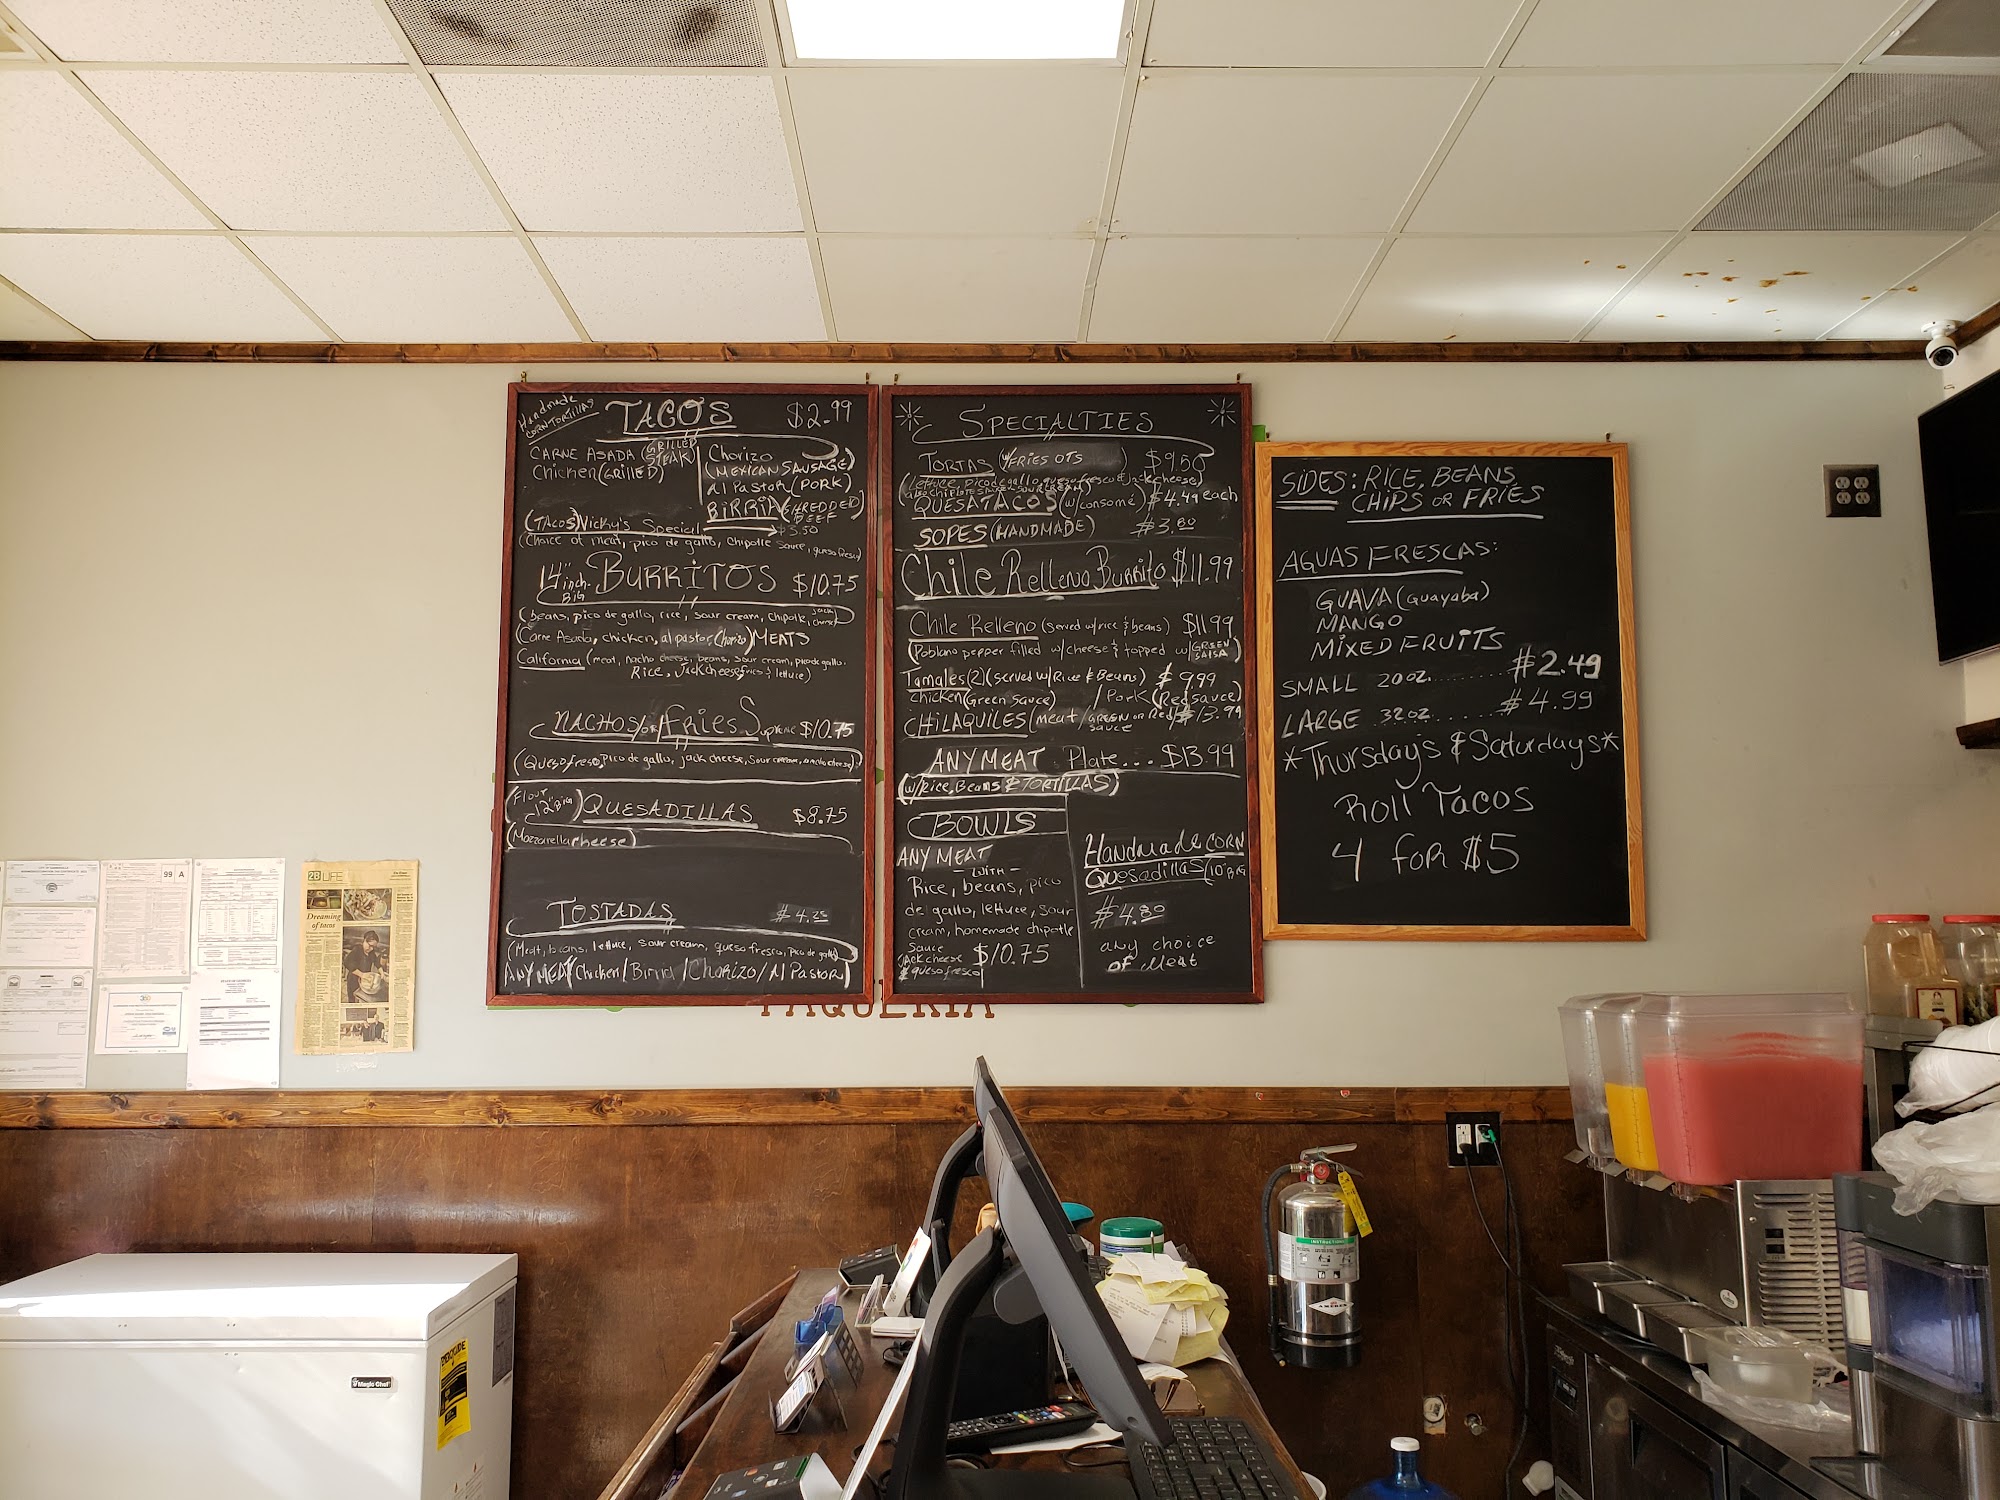 Handmade
CORN-TORTILLAS
TACOS $2.99
CARNE ASADA (GRILLED STEAK)
Chicken (GRILLED)
Chorizo
(MEXICAN SAUSAGE)
Al PastoR (PORK)
BiRRiA (SHREDDED BEEF)
$3.50
(TACOS) Vicky's Special
(Choice of meat, pico de gallo, Chipotle sauce, queso fresco)
14" inch. BIG BURRITOS $10.75
(beans, pico de gallo, rice, sour cream, chipotle, jack cheese)
(Carne Asada, chicken, al pastor, Chorizo) MEATS
California (meat, nacho cheese, beans, sour cream, pico de gallo.
Rice, Jack cheese, fries & lettuce)
NACHOS/or/FRieS Supreme $10.75
(Queso fresco, pico de gallo, jack cheese, sour cream, nacho cheese)
(Flour 12" BIG) QUESADILLAS $8.75
(Mozzarella cheese)
TOSTADAS $4.25
(Meat, beans, lettuce, sour cream, queso fresco, pico de gallo)
ANY MEAT (Chicken/Birria/Chorizo/Al Pastor)
SPECIALTIES
TORTAS (w/FRIES OTS ) $9.50
(lettuce, pico de gallo, queso fresco & jack cheese)
QUESATACOS (w/consomé) $4.49 each
SOPES (HANDMADE) $3.80
Chile Relleno Burrito $11.99
Chile Relleno (served w/rice & beans) $11.99
(Poblano pepper filled w/cheese & topped w/GREEN SALSA)
Tamales (2) (served w/Rice & Beans) $9.99
chicken (Green Sauce) / Pork (Red sauce)
CHILAQUILES (meat/GREEN OR Red sauce) $13.99
ANY MEAT Plate... $13.99
(w/Rice, Beans & TORTILLAS)
BOWLS
ANY MEAT
- WITH -
Rice, beans, pico
de gallo, lettuce, sour
cream, homemade chipotle
sauce
Jack cheese $10.75
& queso fresco
Handmade CORN
Quesadillas (10" BIG
$4.80
any choice
of Meat
SIDES: RICE, BEANS,
CHIPS OR FRIES
AGUAS FRESCAS:
GUAVA (Guayaba)
MANGO
MIXED FRUITS
SMALL 20 oz. ........ $2.49
LARGE 32 oz ........ $4.99
*Thursday's & Saturdays*
Roll TACOS
4 FOR $5
TAQUERIA
99 A
2B LIFE
Dreaming
of tacos
Magic Chef
INSTRUCTIONS
AMEREX